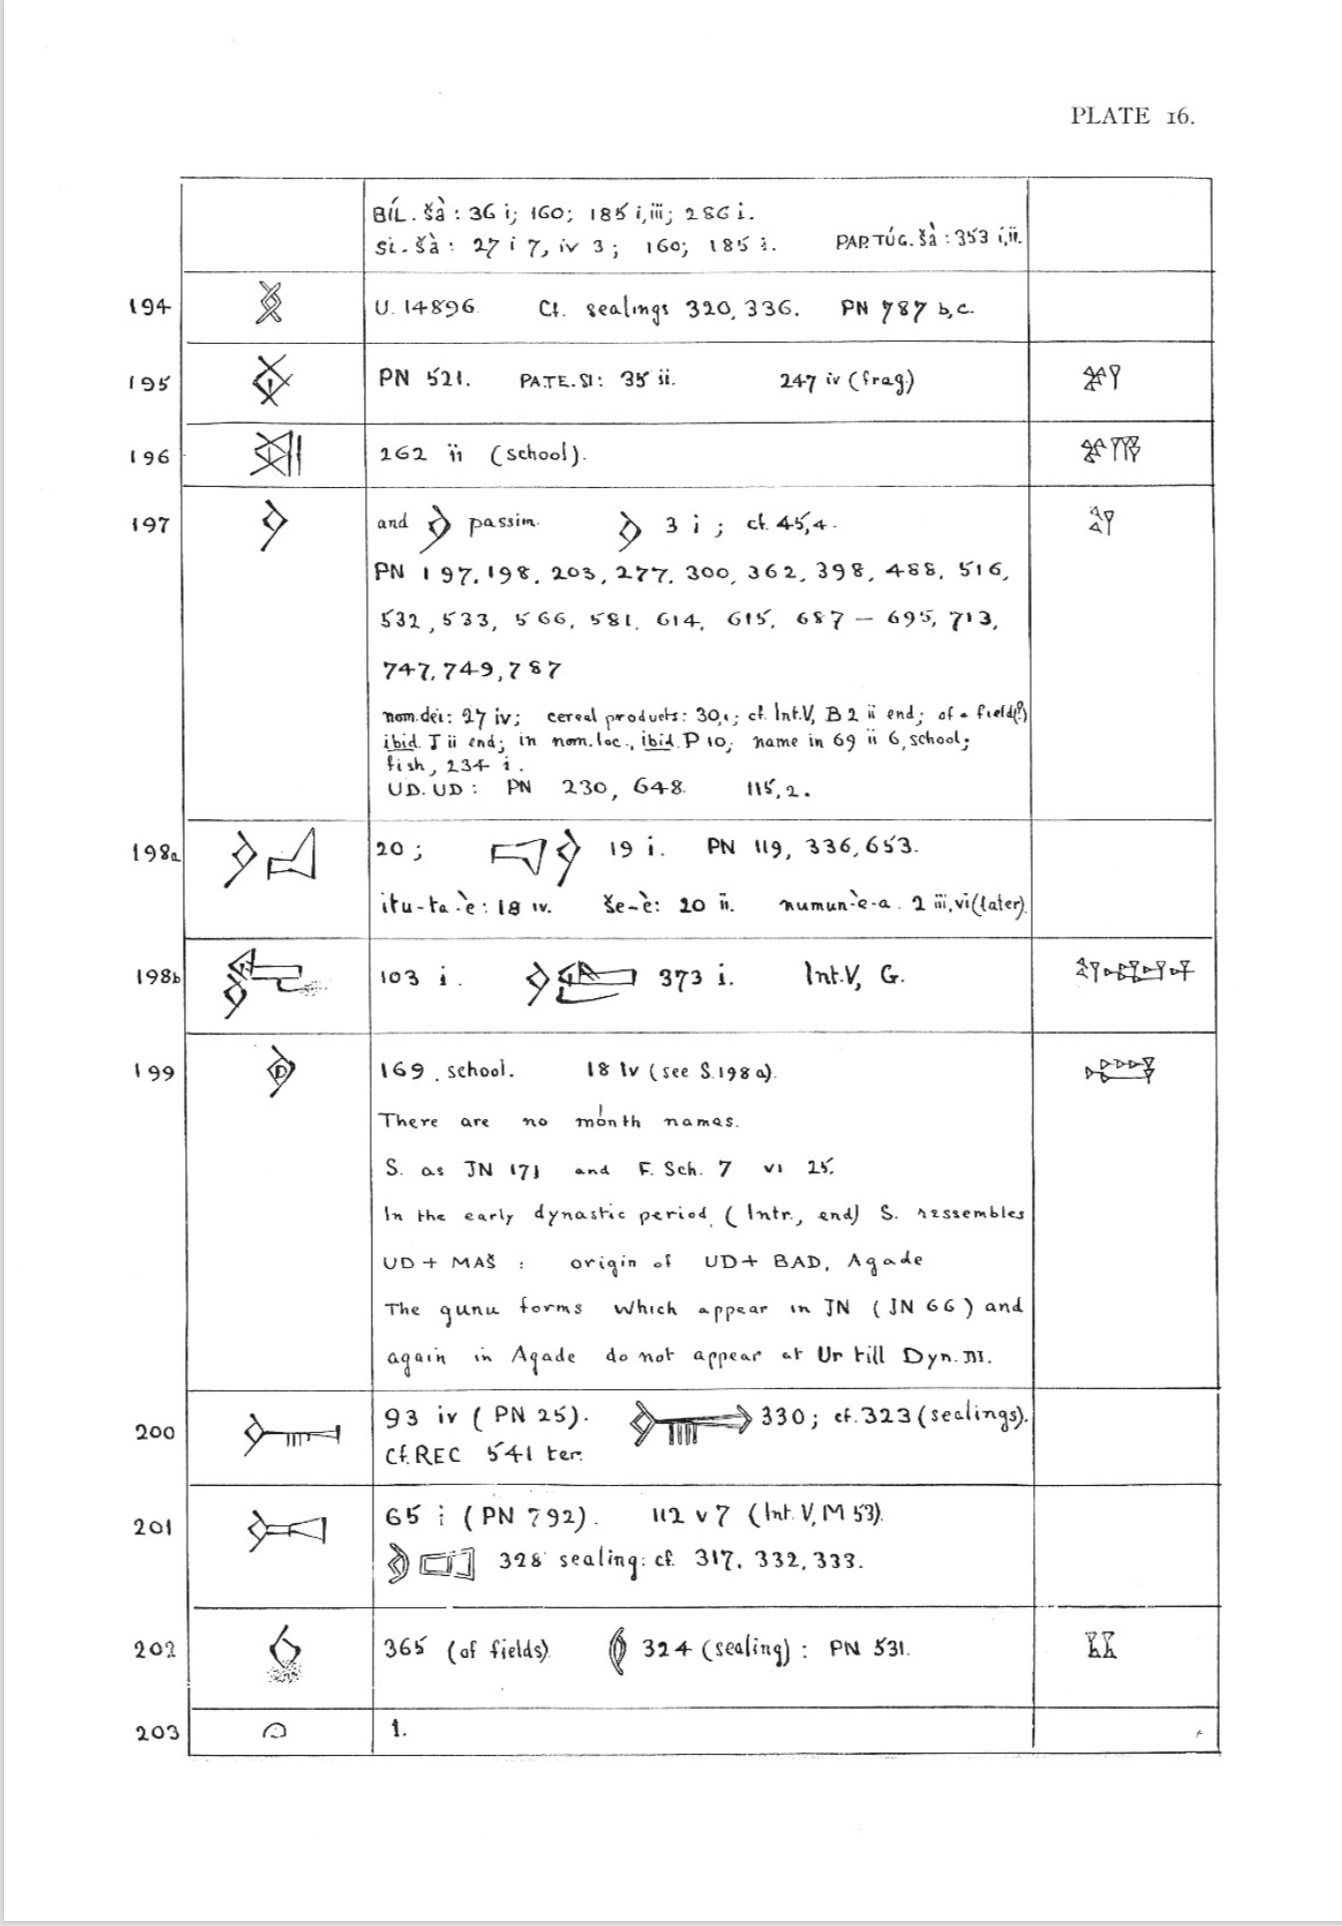 PLATE 16.
BÍL. šà : 36 i; 160; 185 i, iii; 286 i.
SI. šà : 27 i 7, iv 3; 160; 185 i. PAP. TÚG. šà : 353 i, ii.
194 U. 14896. Cf. sealings 320, 336. PN 787 b, c.
195 PN 521. PA.TE.SI: 35 ii. 247 iv (frag.) 𒊮
196 262 ii (school).
197 and passim. 3 i; cf. 45,4. 𒌓
PN 197, 198, 203, 277, 300, 362, 398, 488, 516,
532, 533, 566, 581, 614, 615, 687 – 695, 713,
747, 749, 787
nom. dei: 27 iv; cereal products: 30,1; cf. Int.V, B 2 ii end; of a field(?)
ibid. J ii end; in nom. loc., ibid. P 10; name in 69 ii 6, school;
fish, 234 i.
UD. UD : PN 230, 648. 115,2.
198a 20; 19 i. PN 119, 336, 653.
itu-ta-è : 18 iv. še-è: 20 ii. numun-è-a. 2 iii, vi (later).
198b 103 i. 373 i. Int.V, G.
199 169. school. 18 iv (see S.198a).
There are no month names.
S. as JN 171 and F. Sch. 7 vi 25.
In the early dynastic period, (Intr., end) S. ressembles
UD + MAŠ : origin of UD + BAD, Agade
The gunu forms which appear in JN (JN 66) and
again in Agade do not appear at Ur till Dyn. III.
200 93 iv (PN 25). 330; cf. 323 (sealings).
Cf. REC 541 ter.
201 65 i (PN 792). 112 v 7 (Int. V, M 53).
328 sealing: cf. 317, 332, 333.
202 365 (of fields). 324 (sealing) : PN 531.
203 1.